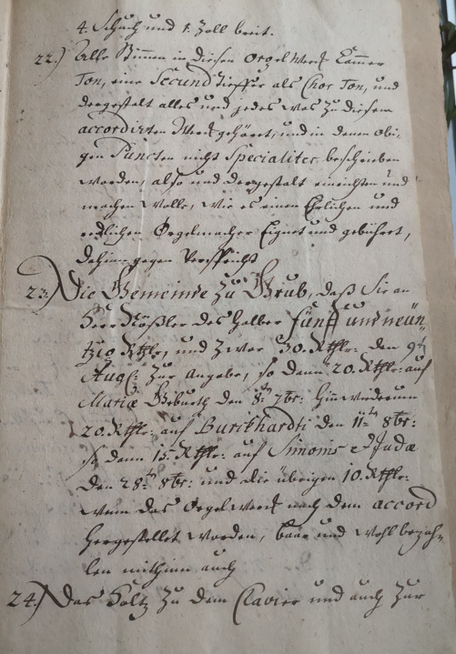 4. Schuch und 1. Zoll breit.
22.) Alle Stimmen in diesen Orgel Werck Cammer
Ton, eine Secund tieffer als Chor Ton, und
dergestalt alles und jedes was zu diesem
accordirten Werck gehöret, und in denen obi-
gen Puncten nicht Specialiter beschrieben
worden, also und dergestalt einrichten und
machen wolle, wie es einen Ehrlichen und
redlichen Orgelmacher Eignet und gebühret,
dahingegen verspricht
23.) Die Gemeinde zu Grub, daß Sie an
Herr Rößler deshalber fünff und neün-
tzig Rthlr, und zwar 30. Rthlr: den 9t
Aug: zur Angabe, so dann 20. Rthlr: auf
Mariæ Geburth den 8t 7br: hinwiederum
20. Rthlr: auf Burckhardti den 11t 8br:
so dann 15. Rthlr: auf Simonis et Judæ
den 28t 8br: und die übrigen 10. Rthlr:
wenn das Orgelwerck nach dem accord
hergestellet worden, baar und wohl bezah-
len mithin auch
24.) Das Holtz zu dem Clavier und auch zur